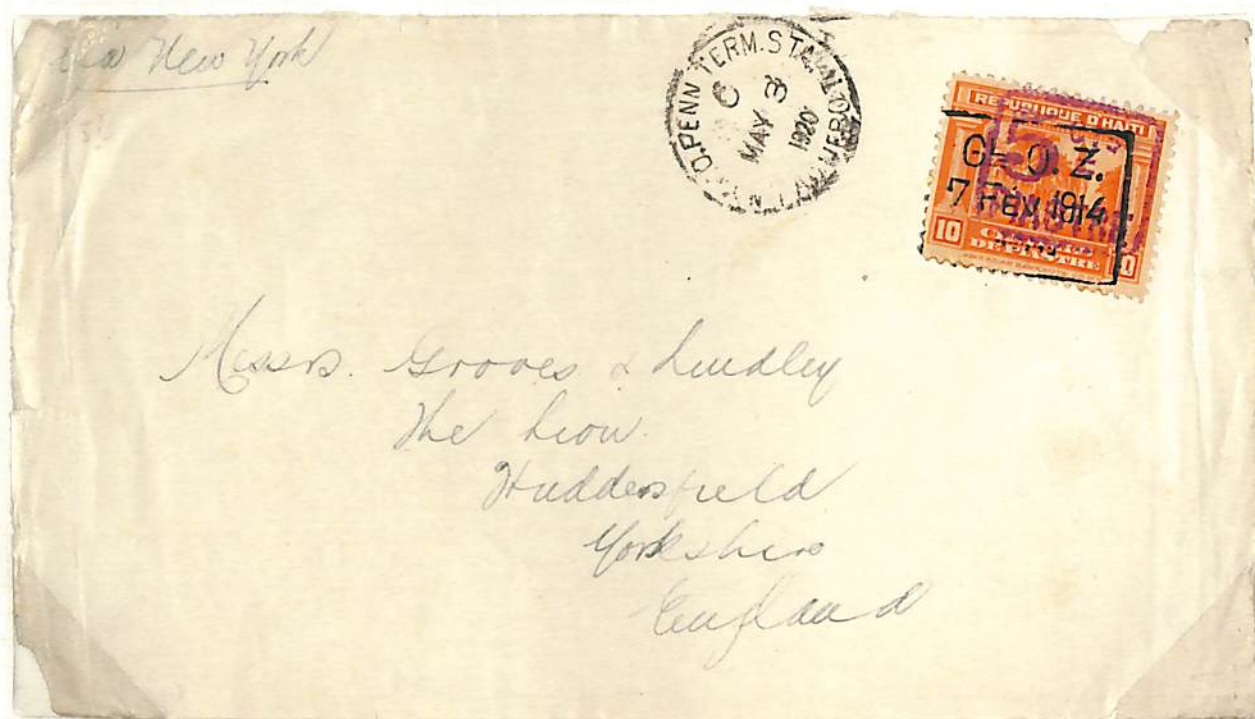 via New York
N.Y.P.O. PENN TERM. STA. PAQUEBOT
MAY 8
1920
REPUBLIQUE D'HAITI
5
GL O. Z.
7 FEV. 1914
10 DE PIASTRE
Messrs. Groves & Lindley
The Lion.
Huddersfield
Yorkshire
England